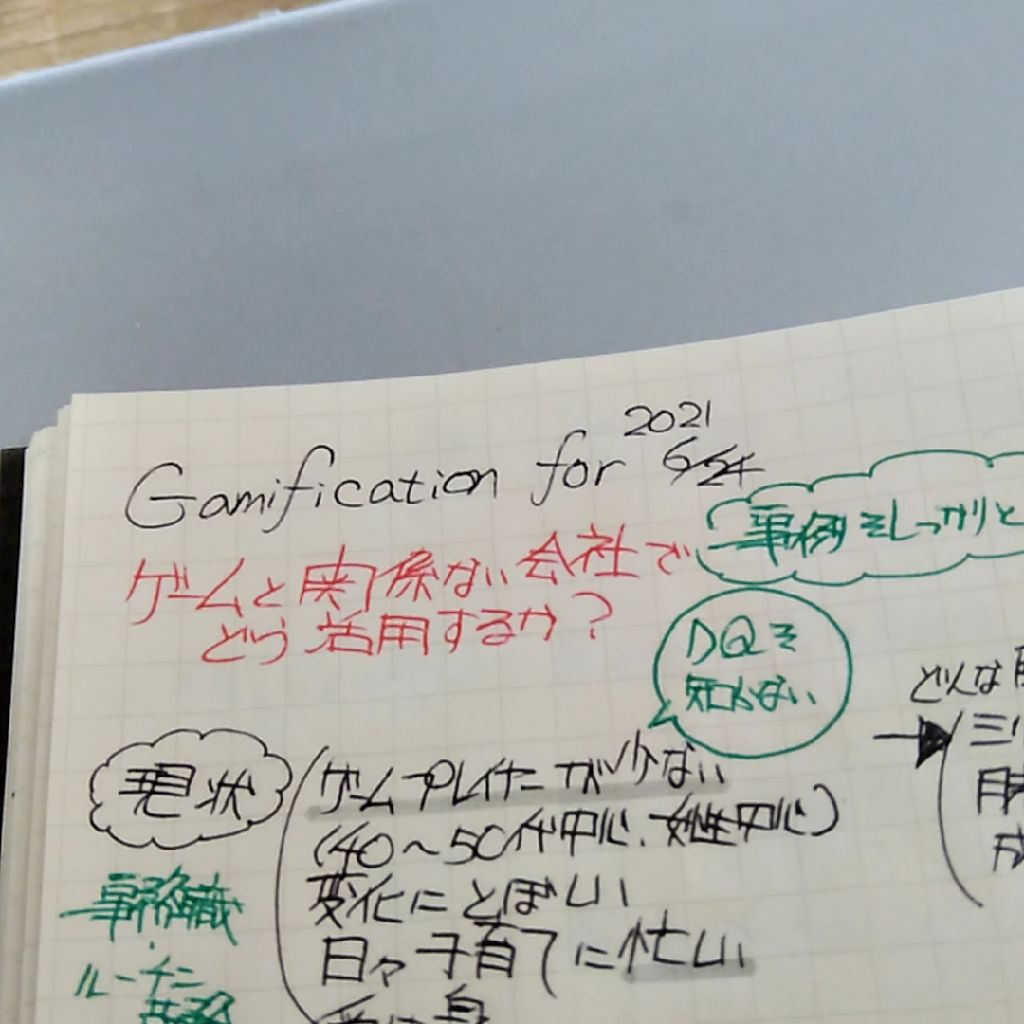 Gamification for 2021 6/24
ゲームと関係ない会社で
どう活用するか?
事例をしっかりと
DQを
知らない
現状
ゲームプレイヤーが少ない
(40～50代中心、女性中心)
変化にとぼしい
日々子育てに忙しい
受け身
事務職
ルーチン
どんな